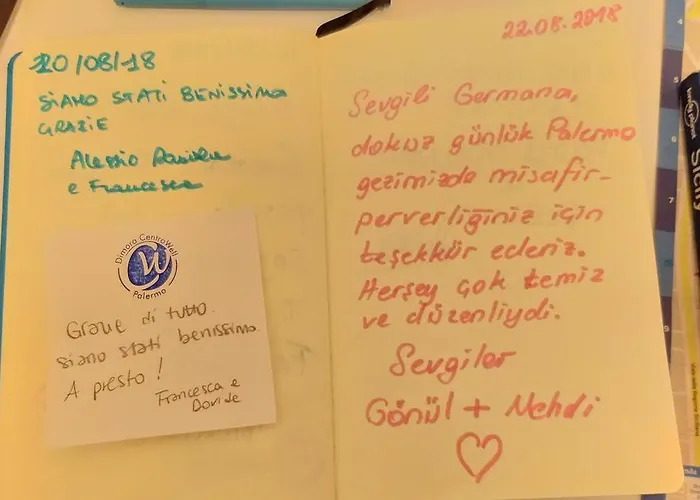 10/08/18
SIAMO STATI BENISSIMO
GRAZIE
Alessio Davide
e Francesca
Dimora CentroWell
W
Palermo
Grazie di tutto.
Siamo stati benissimo.
A presto!
Francesca e
Davide
22.08.2018
Sevgili Germana,
dokuz günlük Palermo
gezimizde misafir-
perverliğiniz için
teşekkür ederiz.
Herşey çok temiz
ve düzenliydi.
Sevgiler
Gönül + Mehdi
Sicily